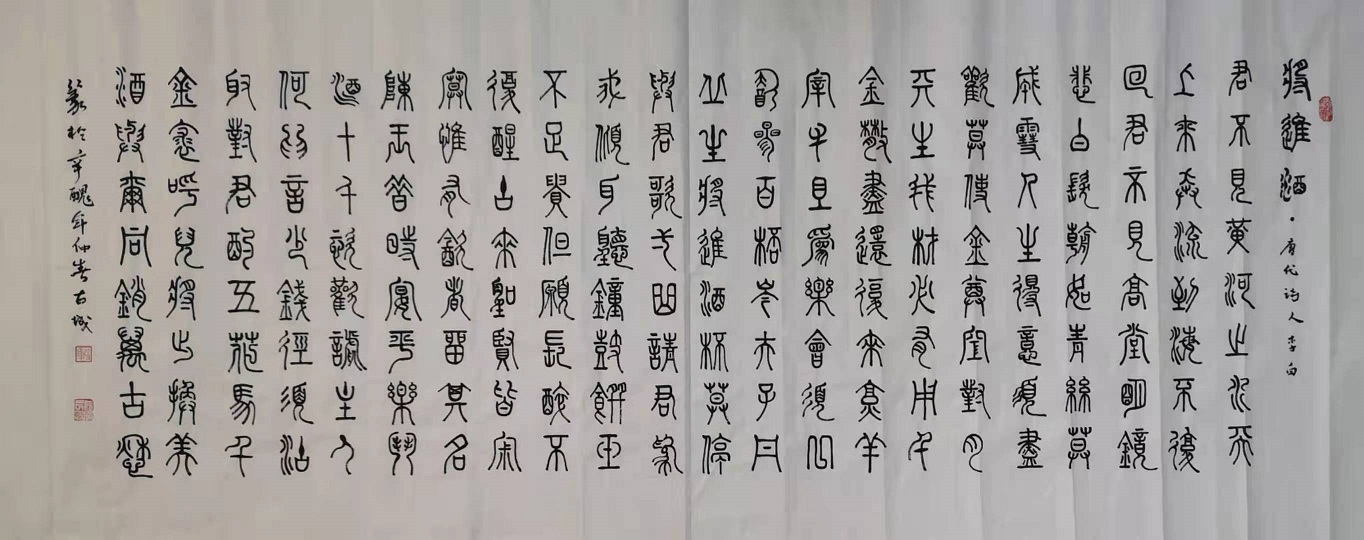 將進酒·唐代詩人李白
君不見黃河之水天
上來奔流到海不復
回君不見高堂明鏡
悲白髮朝如青絲莫
成雪人生得意須盡
歡莫使金尊空對月
天生我材必有用千
金散盡還復來烹羊
宰牛且為樂會須一
飲三百桮岑夫子丹
丘生將進酒杯莫停
與君歌一曲請君為
我傾耳聽鐘鼓饌玉
不足貴但願長醉不
復醒古來聖賢皆寂
寞惟有飲者留其名
陳王昔時宴平樂鬥
酒十千恣歡謔主人
何為言少錢徑須沽
取對君酌五花馬千
金裘呼兒將出換美
酒與爾同銷萬古愁
篆於辛醜年仲春古城